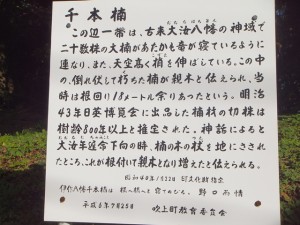 千本楠
この辺一帯は、古来大汝八幡の神域で
二十数株の大楠があたかも竜が寝ているように
連なり、また、天空高く梢を伸ばしている。この中
の、倒れ伏して朽ちた楠が親木と伝えられ、当
時は根回り18メートル余りあったという。明治
43年日英博覧会に出品した楠材の切株は
樹齢800年以上と推定された。神話によると
大汝年延命下向の時、楠の木の杖を地にさされ
たところ、これが根付いて親木となり増えたと伝えられる。
昭和40年 町文化財指定
伊作八幡千本楠は 横へ横へと 寝てのびる 野口雨情
平成6年7月25日
吹上町教育委員会